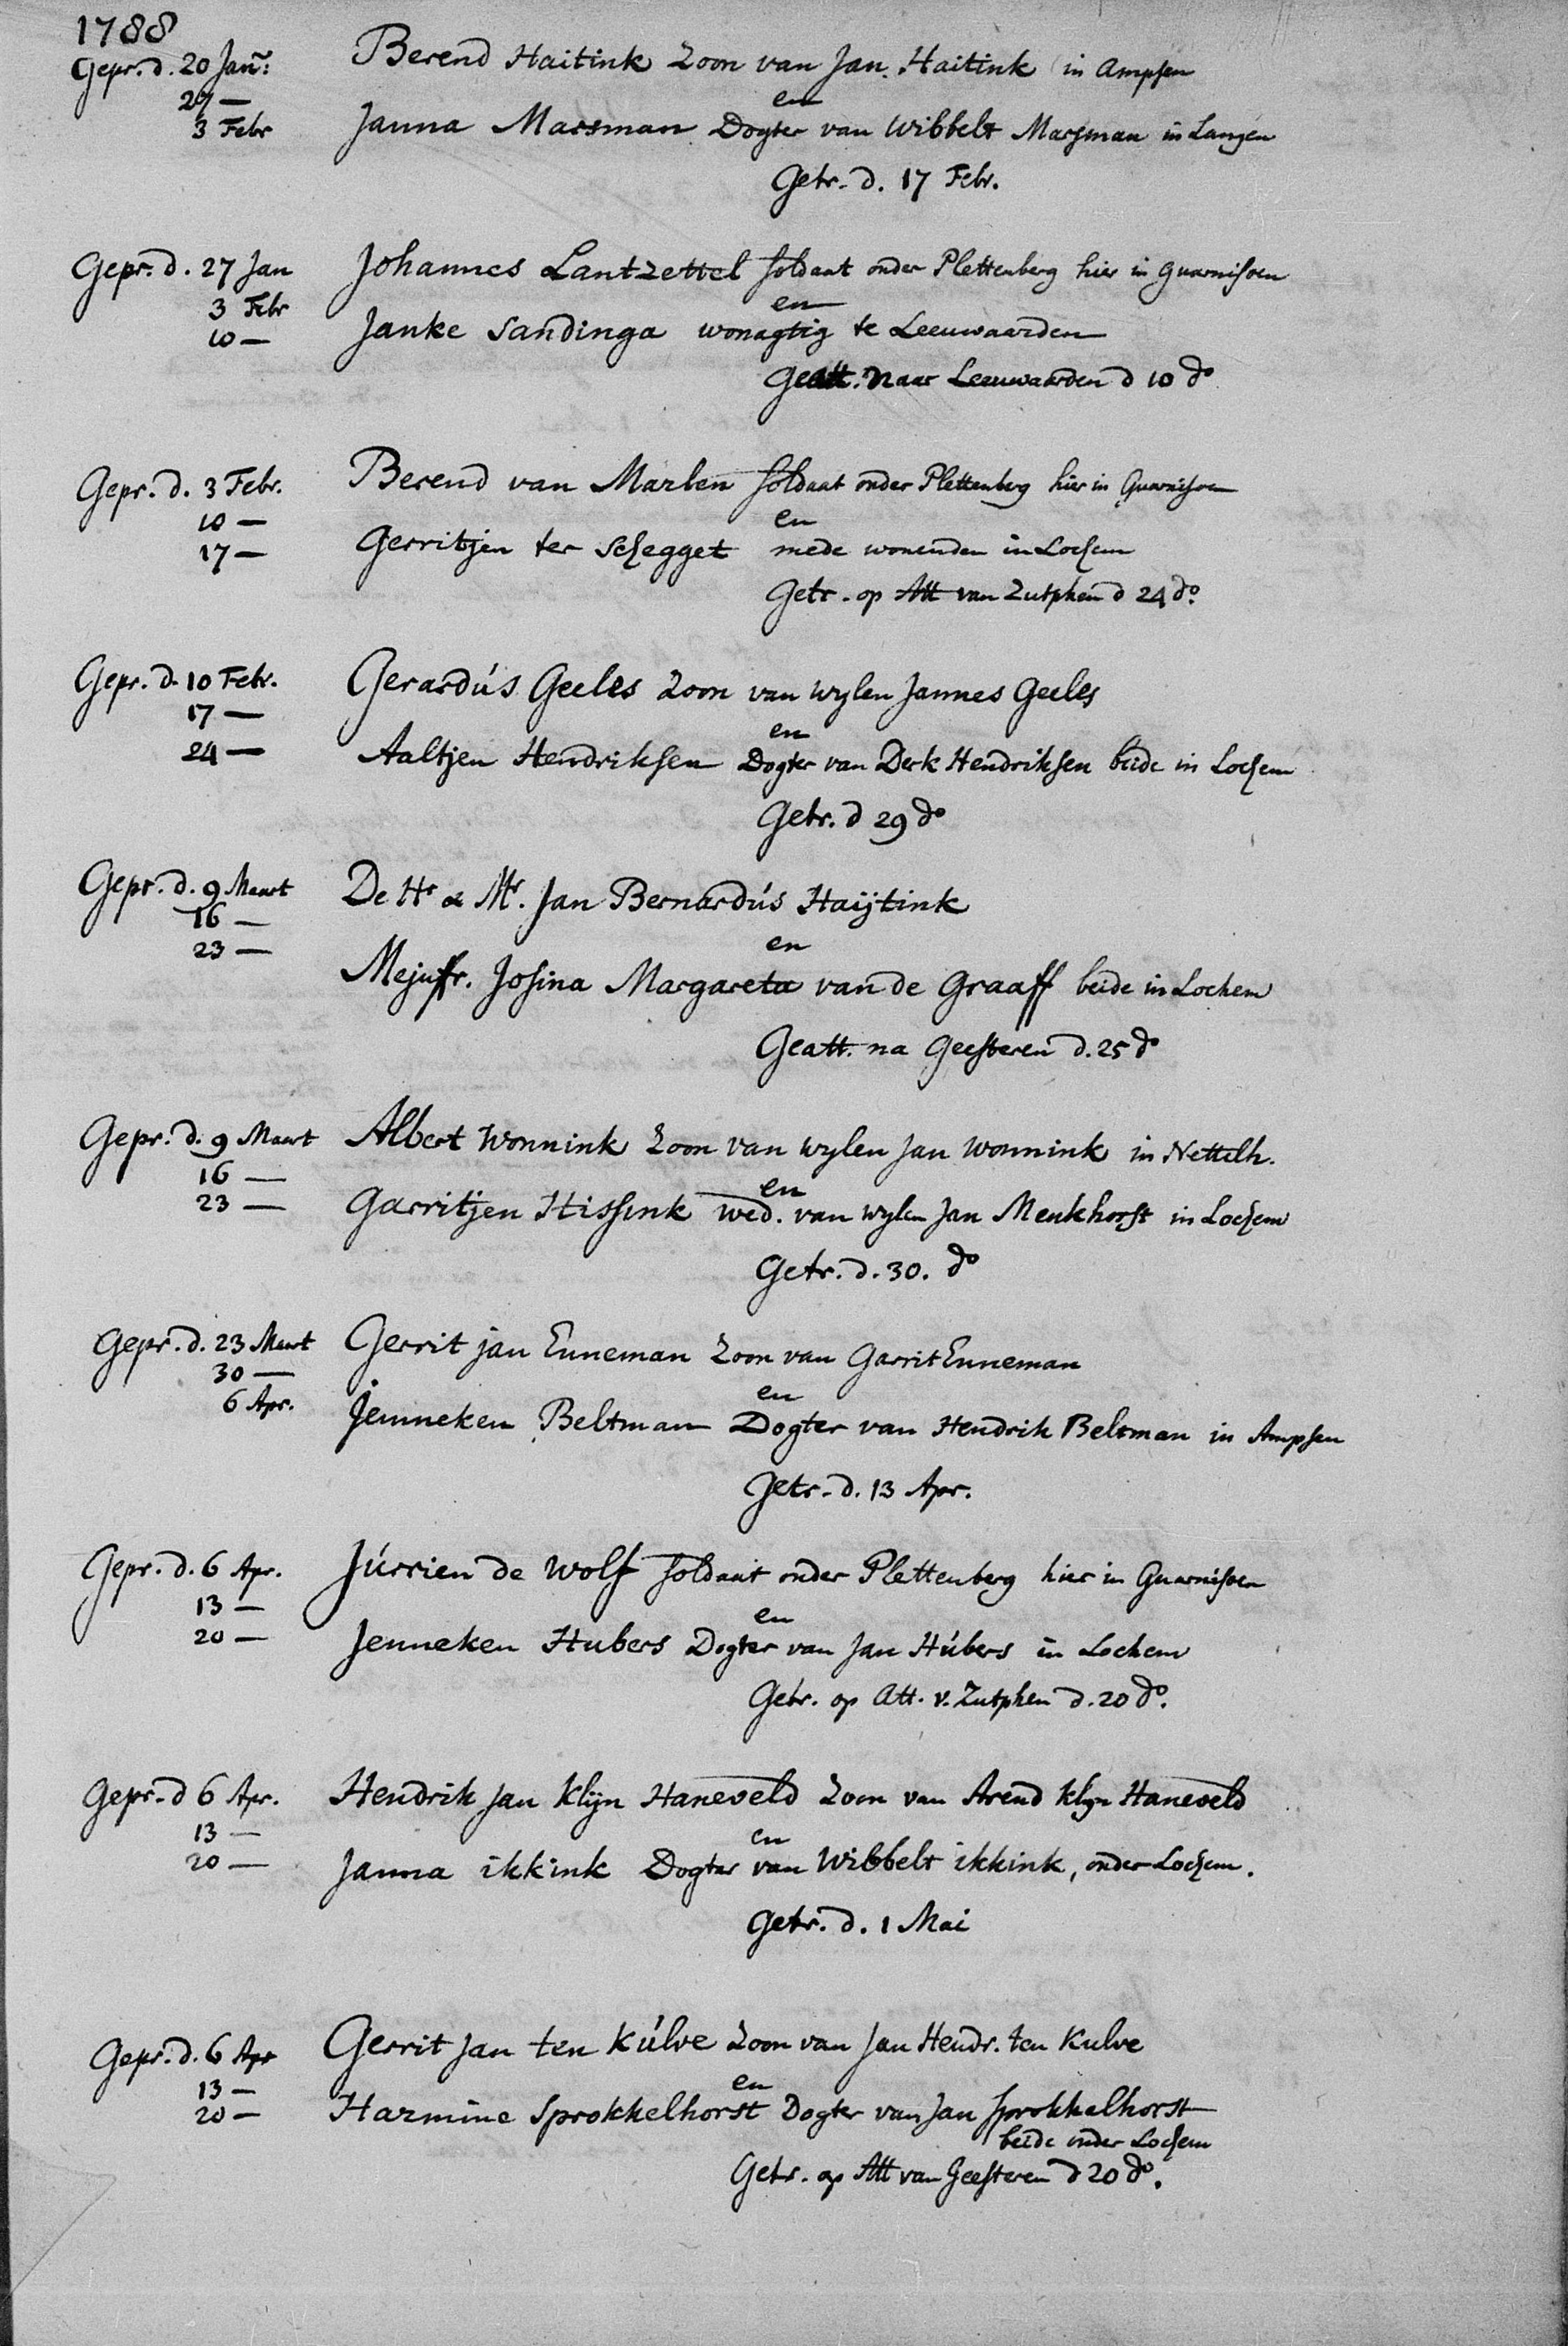 1788
Gepr. d. 20 Jan: Berend Haitink Zoon van Jan Haitink in Ampsen
27 — en
3 Febr Janna Marsman Dogter van Wibbelt Marsman in Langen
Getr. d. 17 Febr.
Gepr. d. 27 Jan Johannes Lantzettel soldaat onder Plettenberg hier in Guarnisoen
3 Febr en
10 — Janke Sandinga wonagtig te Leeuwaarden
Geatt. naar Leeuwaarden d 10 do
Gepr. d. 3 Febr. Berend van Marlen soldaat onder Plettenberg hier in Guarnisoen
10 — en
17 — Gerritjen ter Schegget mede wonenden in Lochem
Getr. op Att van Zutphen d 24 do.
Gepr. d. 10 Febr. Gerardús Geeles Zoon van wylen Jannes Geeles
17 — en
24 — Aaltjen Hendriksen Dogter van Derk Hendriksen beide in Lochem
Getr. d 29 do
Gepr. d. 9 Maart De Hr & Mr. Jan Bernardús Haijtink
16 —
23 — en
Mejuffr. Josina Margareta van de Graaff beide in Lochem
Geatt. na Geesteren d. 25 do
Gepr. d. 9 Maart Albert Wonnink Zoon van wylen Jan Wonnink in Nettelh.
16 — en
23 — Garritjen Hissink wed. van wylen Jan Menkhorst in Lochem
Getr. d. 30. do
Gepr. d. 23 Maart Gerrit jan Enneman Zoon van Garrit Enneman
30 — en
6 Apr. Jenneken Beltman Dogter van Hendrik Beltman in Ampsen
Getr. d. 13 Apr.
Gepr. d. 6 Apr. Júrrien de Wolf soldaat onder Plettenberg hier in Guarnisoen
13 — en
20 — Jenneken Hubers Dogter van Jan Húbers in Lochem
Getr. op Att. v. Zutphen d. 20 do.
Gepr. d 6 Apr. Hendrik Jan Klijn Haneveld Zoon van Arend Klyn Haneveld
13 — en
20 — Janna ikkink Dogter van Wibbelt ikkink, onder Lochem.
Getr. d. 1 Mai
Gepr. d. 6 Apr Gerrit Jan ten Kúlve Zoon van Jan Hendr. ten Kulve
13 — en
20 — Harmine Sprokkelhorst Dogter van Jan Sprokkelhorst
beide onder Lochem
Getr. op Att van Geesteren d 20 do.